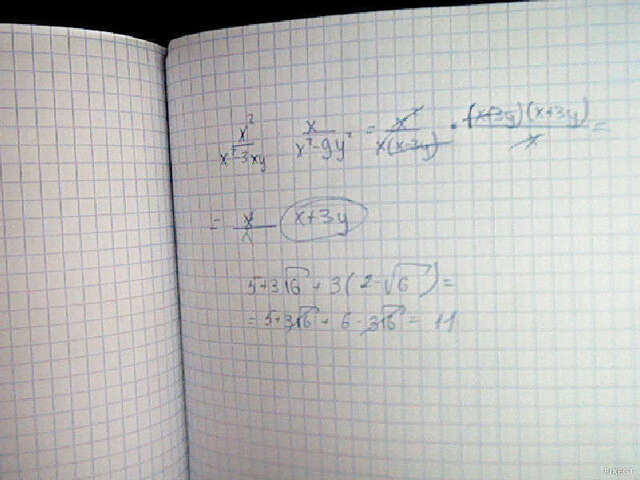 x² / (x² - 3xy) x / (x² - 9y²) = x² / (x(x-3y)) · (x-3y)(x+3y) / x =
= x+3y
5+3√6 + 3(2-√6) =
= 5+3√6 + 6 - 3√6 = 11
PIXECT